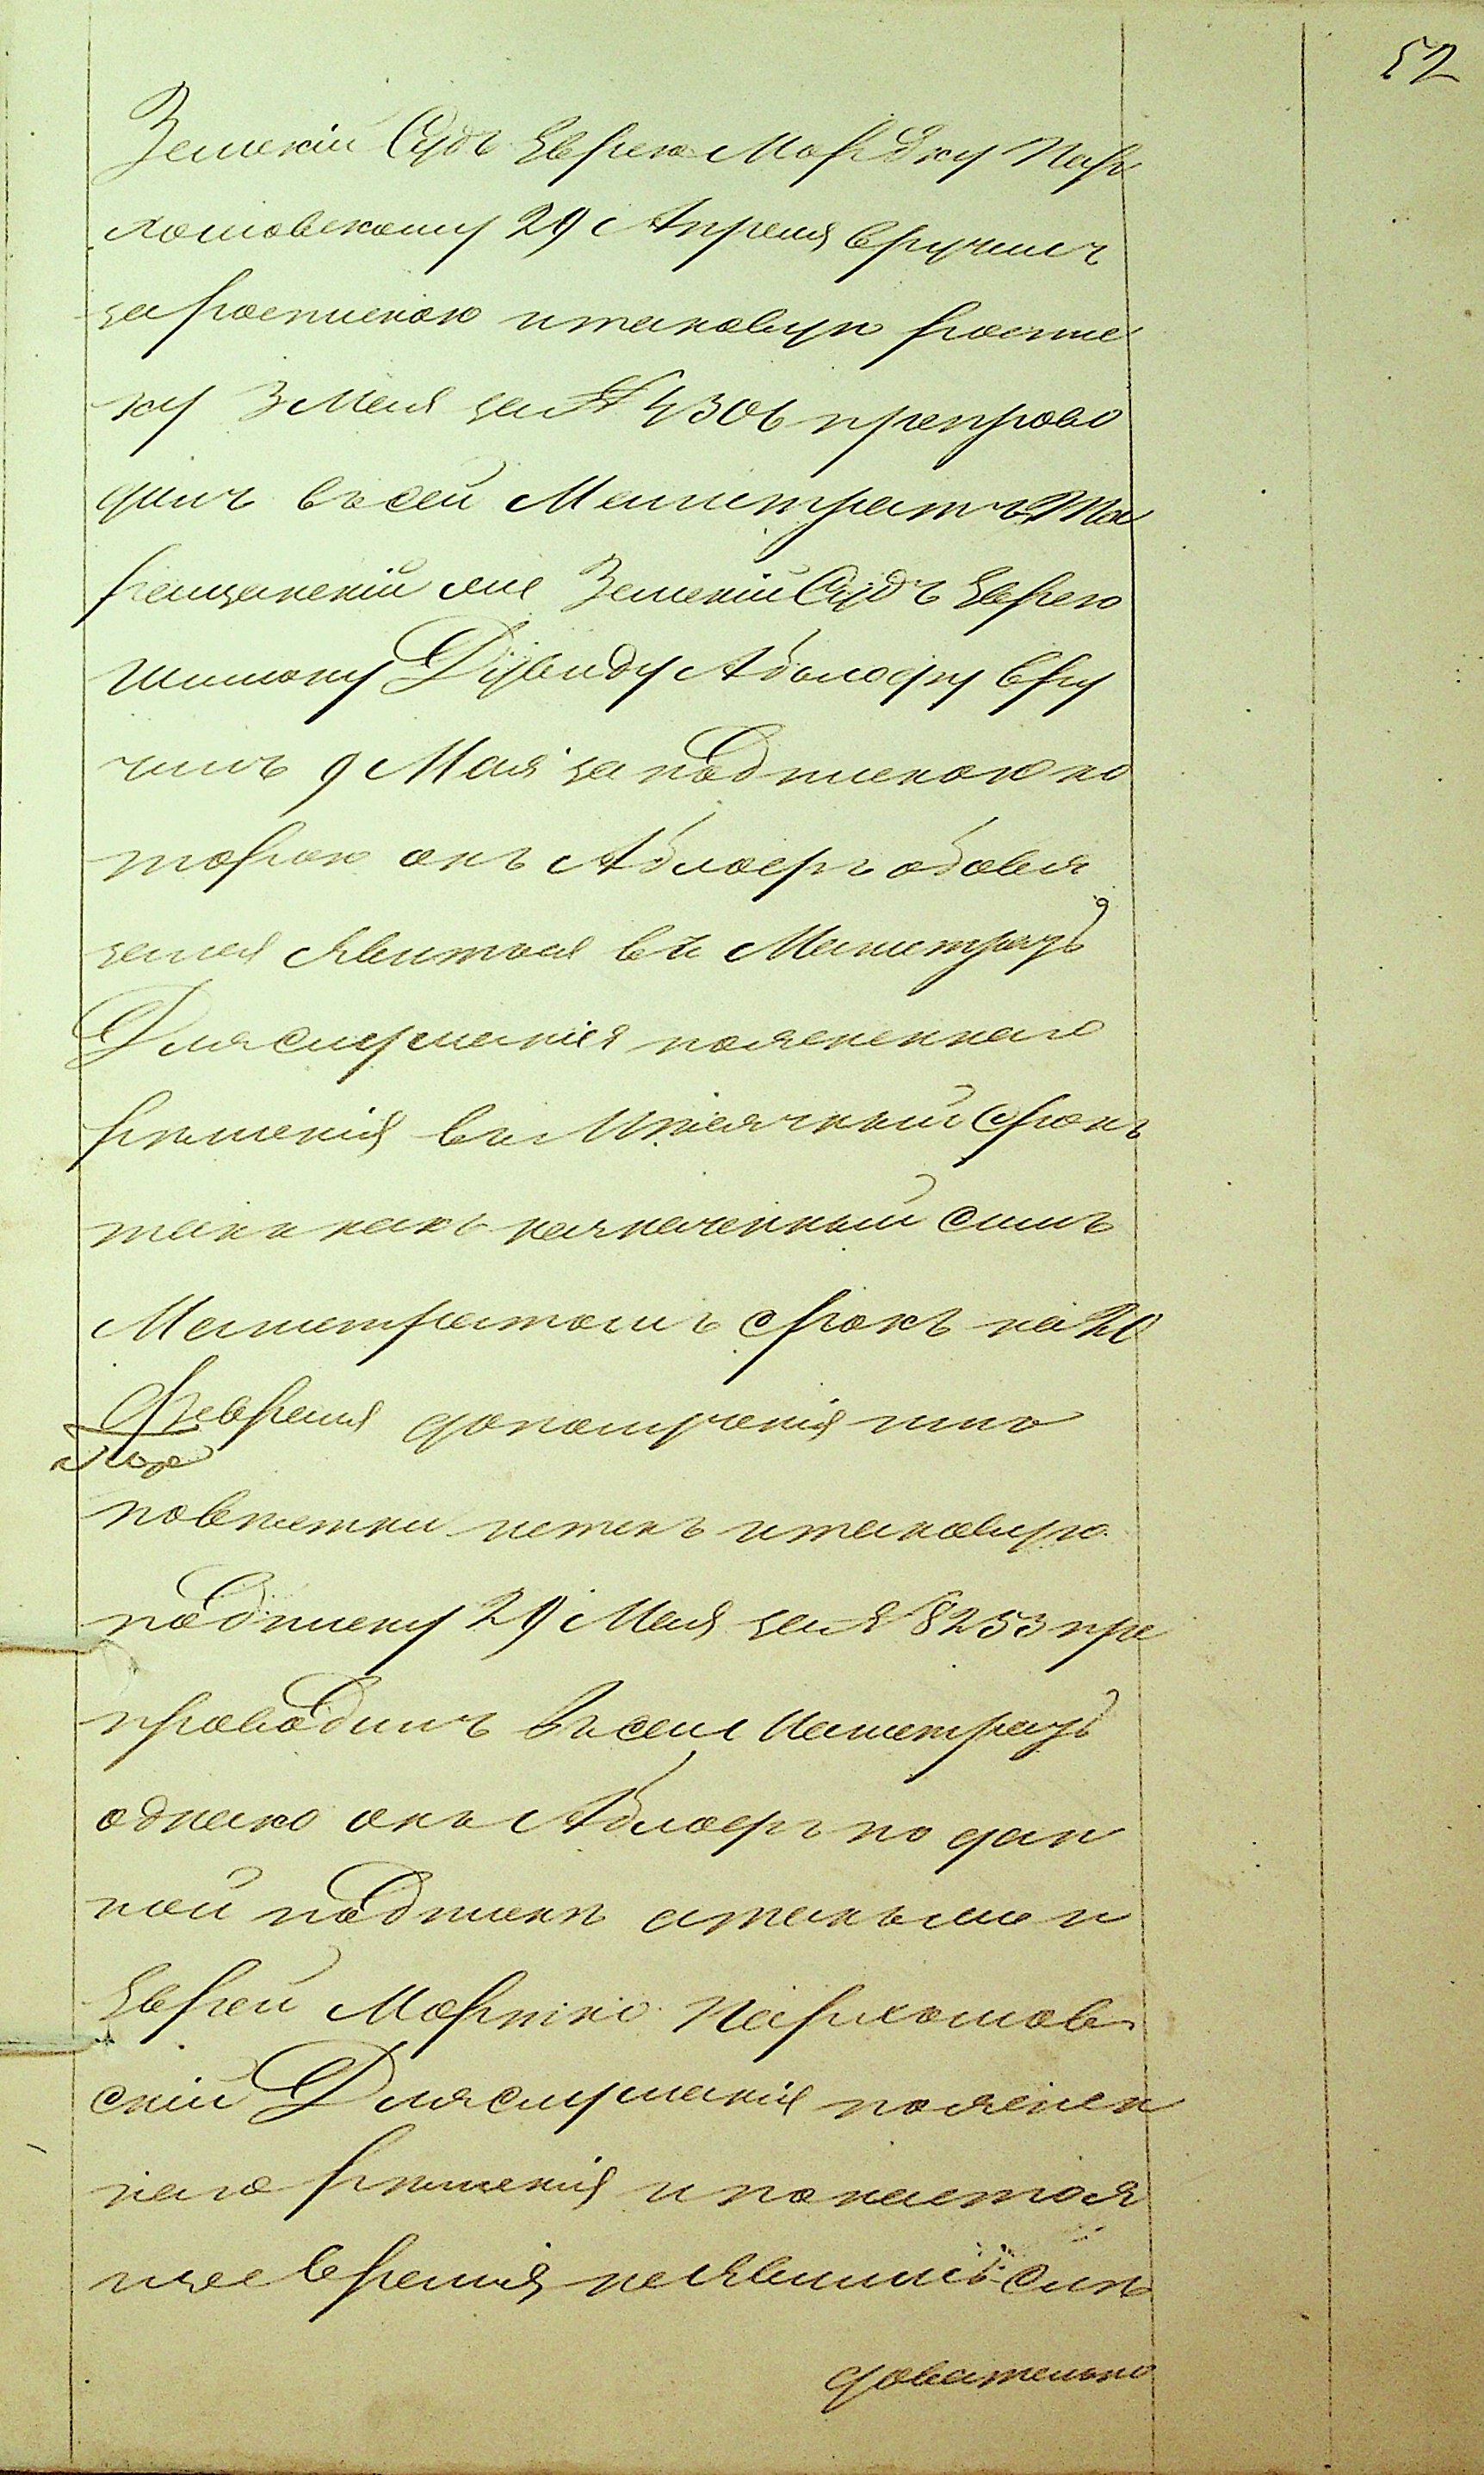 52
Земскій Судъ Еврею Мордку Пар
хомовскому 29 Апреля вручилъ
за роспискою и таковую роспис
ку 3 Мая за № 4306 препрово
дилъ въ сей Магистратъ Та
ращанскій же Земскій Судъ Еврею
Шимону Дувиду Аблоеру вру
чилъ 9 Мая за подпискою ко
торою онъ Аблоеръ обовя
зался явится въ Магистратъ
Для слушанія поясненнаго
решенія въ Мѣсячный срокъ
такъ какъ назначенный симъ
Магистратомъ срокъ на 20
Февраля до полученія имъ
повѣстки истекъ и таковую
подписку 29 Мая за № 8253 пре
проводилъ въ сей Магистратъ
однако онъ Аблоеръ по дан
ной подпискѣ а такъ же и
Еврей Мортко Пархомов
скій Для слушанія пояснен
наго решенія и по настоя
щее время не явились слѣ
довательно